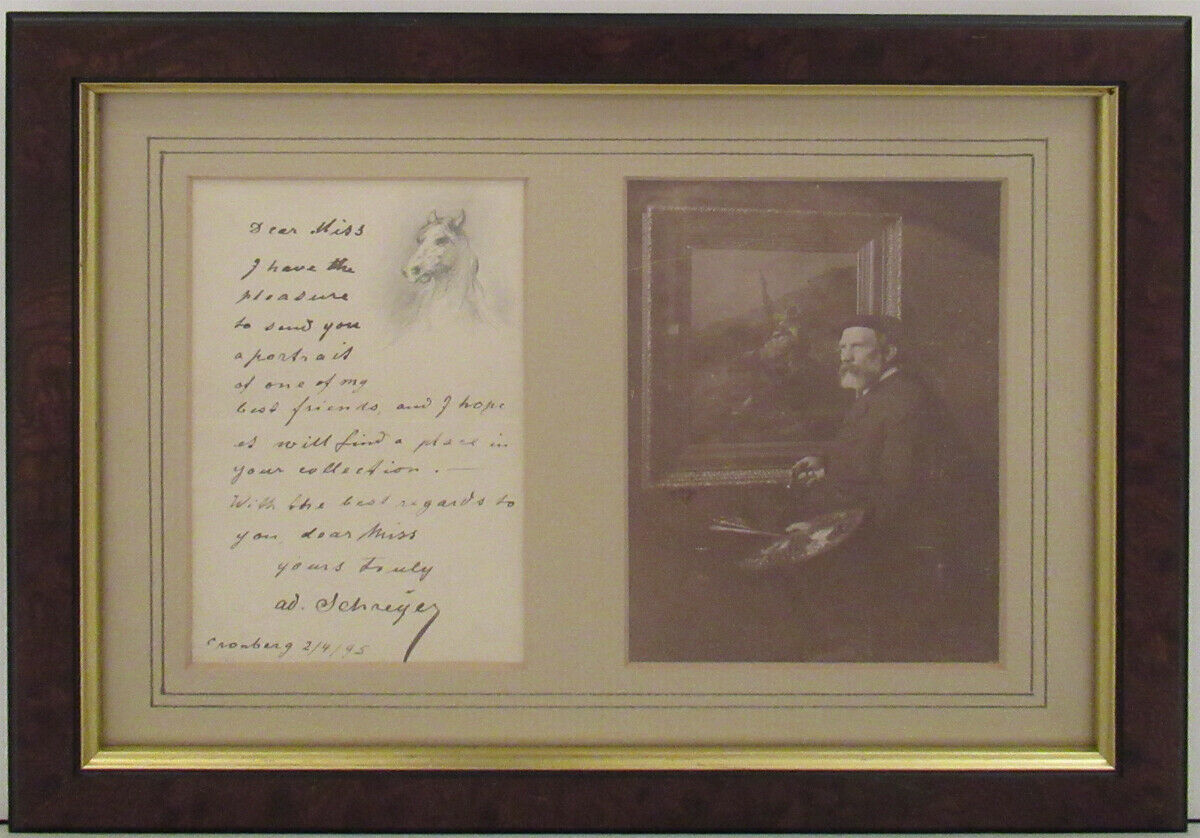 Dear Miss
I have the
pleasure
to send you
a portrait
of one of my
best friends, and I hope
et will find a place in
your collection. —
With the best regards to
you, dear Miss
yours truly
ad. Schreyer
Cronberg 2/4/95